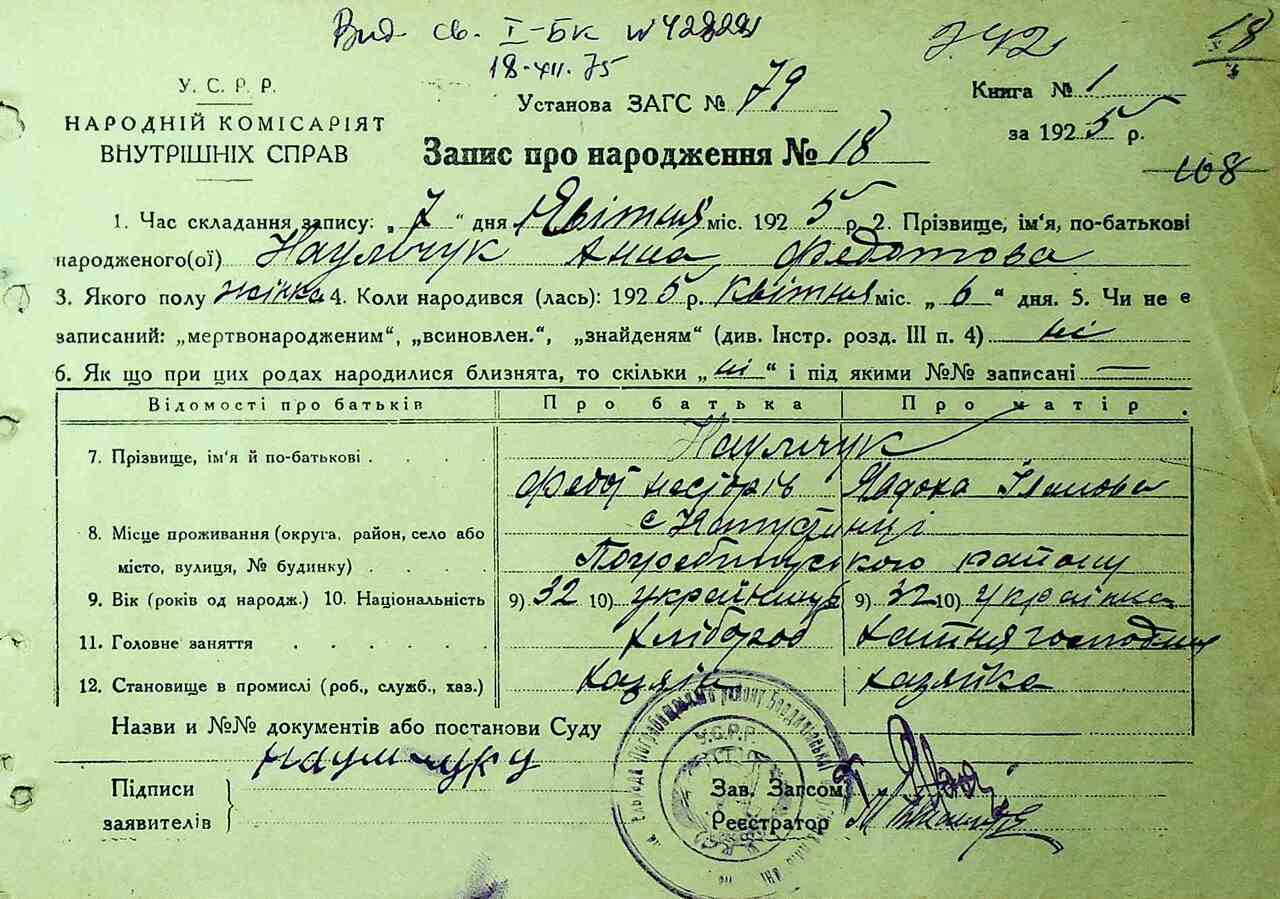 Вид. св. I-БК № 428291
18-XII-75
У. С. Р. Р.
НАРОДНІЙ КОМІСАРІЯТ
ВНУТРІШНІХ СПРАВ
Установа ЗАГС № 79
Запис про народження № 18
Книга № 1
за 1925 р.
168
1. Час складання запису: „7“ дня Квітня міс. 1925 р. 2. Прізвище, ім'я, по-батькові
народженого(ої) Наумчук Анна Федотова
3. Якого полу жінка 4. Коли народився (лась): 1925 р. Квітня міс. „6“ дня. 5. Чи не є
записаний: „мертвонародженим“, „всиновлен.“, „знайденям“ (див. Інстр. розд. III п. 4) ні
6. Як що при цих родах народилися близнята, то скільки „ні“ і під якими №№ записані —
Відомості про батьків Про батька Про матір
7. Прізвище, ім'я й по-батькові . . . . Наумчук
Федот Явдоха
8. Місце проживання (округа, район, село або
с
місто, вулиця, № будинку) . . . . Погребищуського району
9. Вік (років од народж.) 10. Національність 9) 32 10) українець 9) 32 10) українка
11. Головне заняття . . . . . . хлібороб хатня господиня
12. Становище в промислі (роб., служб., хаз.) хазяїн хазяйка
Назви и №№ документів або постанови Суду
Наумчук
Підписи
заявителів
Зав. Загсом
Реєстратор
У.С.Р.Р.